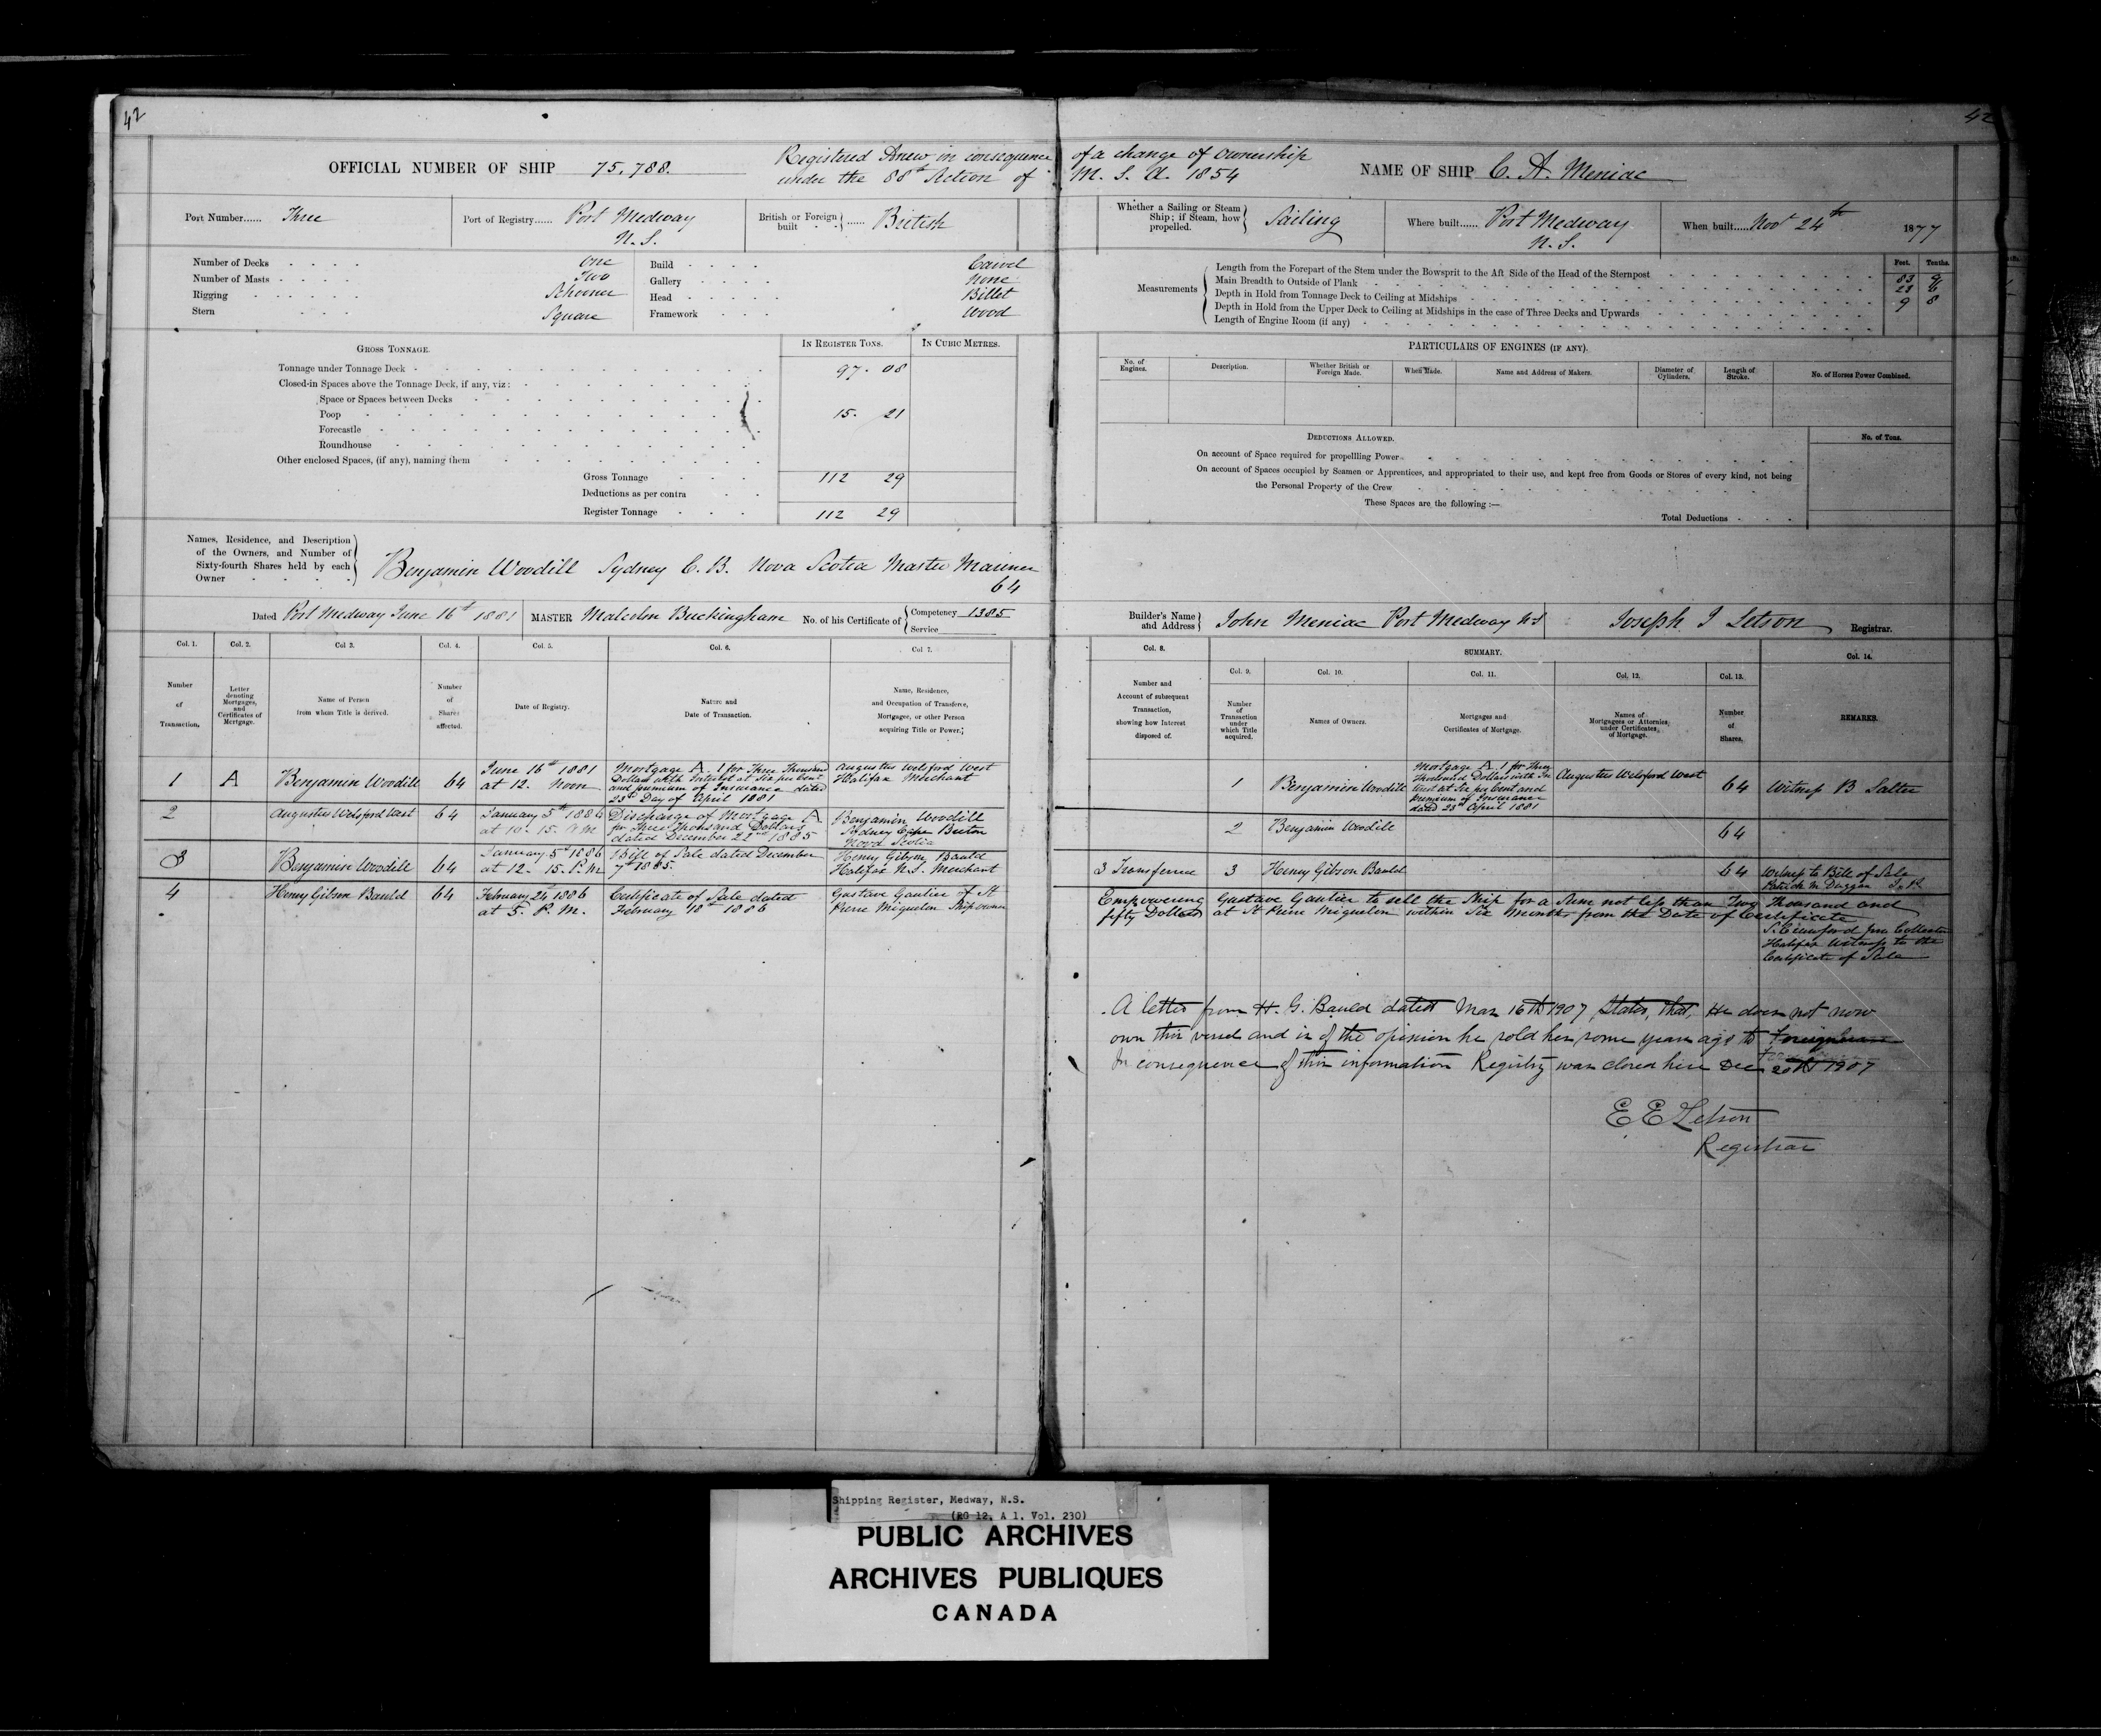 42
42
OFFICIAL NUMBER OF SHIP 75,788.
Registered Anew in consequence of a change of ownership
under the 88th Section of M. S. A. 1854
NAME OF SHIP C. A. Meniac
Port Number...... Three
Port of Registry...... Port Medway
N. S.
British or Foreign built ...... British
Whether a Sailing or Steam Ship; if Steam, how propelled. Sailing
Where built...... Port Medway
N. S.
When built..... Novr 24th 1877
Number of Decks One
Number of Masts Two
Rigging Schooner
Stern Square
Build Carvel
Gallery None
Head Billet
Framework Wood
Measurements
Feet. Tenths.
Length from the Forepart of the Stem under the Bowsprit to the Aft Side of the Head of the Sternpost 83
Main Breadth to Outside of Plank 23
Depth in Hold from Tonnage Deck to Ceiling at Midships 9 8
Depth in Hold from the Upper Deck to Ceiling at Midships in the case of Three Decks and Upwards
Length of Engine Room (if any)
GROSS TONNAGE.
IN REGISTER TONS.
IN CUBIC METRES.
Tonnage under Tonnage Deck 97. 08
Closed-in Spaces above the Tonnage Deck, if any, viz:
Space or Spaces between Decks
Poop 15. 21
Forecastle
Roundhouse
Other enclosed Spaces, (if any), naming them
Gross Tonnage 112 29
Deductions as per contra
Register Tonnage 112 29
PARTICULARS OF ENGINES (IF ANY).
No. of Engines.
Description.
Whether British or Foreign Made.
When Made.
Name and Address of Makers.
Diameter of Cylinders.
Length of Stroke.
No. of Horses Power Combined.
DEDUCTIONS ALLOWED.
No. of Tons.
On account of Space required for propellling Power
On account of Spaces occupied by Seamen or Apprentices, and appropriated to their use, and kept free from Goods or Stores of every kind, not being
the Personal Property of the Crew
These Spaces are the following :—
Total Deductions
Names, Residence, and Description
of the Owners, and Number of
Sixty-fourth Shares held by each
Owner
Benjamin Woodill Sydney C. B. Nova Scotia Master Mariner
64
Dated Port Medway June 16th 1881
MASTER Malcolm Buckingham
No. of his Certificate of
Competency 1385
Service
Builder's Name and Address John Meniac Port Medway NS
Joseph I Letson Registrar.
Col. 1.
Col. 2.
Col 3.
Col. 4.
Col. 5.
Col. 6.
Col 7.
Col. 8.
SUMMARY.
Col. 9.
Col. 10.
Col. 11.
Col. 12.
Col. 13.
Col. 14.
Number of Transaction.
Letter denoting Mortgages, and Certificates of Mortgage.
Name of Person from whom Title is derived.
Number of Shares affected.
Date of Registry.
Nature and Date of Transaction.
Name, Residence, and Occupation of Transferee, Mortgagee, or other Person acquiring Title or Power.
Number and Account of subsequent Transaction, showing how Interest disposed of.
Number of Transaction under which Title acquired.
Names of Owners.
Mortgages and Certificates of Mortgage.
Names of Mortgagees or Attornies, under Certificates of Mortgage.
Number of Shares.
REMARKS.
1 A Benjamin Woodill 64
June 16th 1881
at 12. Noon
Mortgage A. 1 for Three Thousand
Dollars with Interest at Six per Cent
and premium of Insurance dated
23rd Day of April 1881
Augustus Welsford West
Halifax Merchant
1 Benjamin Woodill
Mortgage A. 1 for Three
Thousand Dollars with In
terest at Six per Cent and
premium of Insurance
dated 23rd April 1881
Augustus Welsford West
64
Witness B Salter
2 Augustus Welsford West 64
January 5th 1886
at 10. 15. A M
Discharge of Mortgage A
for Three Thousand Dollars
dated December 22nd 1885
Benjamin Woodill
Sydney Cape Breton
Nova Scotia
2 Benjamin Woodill
64
3 Benjamin Woodill 64
January 5th 1886
at 12. 15. P. M
Bill of Sale dated December
7th 1885.
Henry Gibson Bauld
Halifax N.S. Merchant
3 Transferred 3 Henry Gibson Bauld
64
Witness to Bill of Sale
Patrick M Duggan J. P.
4 Henry Gibson Bauld 64
February 24 1886
at 5. P. M.
Certificate of Sale dated
February 18th 1886
Gustave Gautier of St
Pierre Miquelon Ship owner
Empowering Gustave Gautier to sell the Ship for a Sum not less than Two Thousand and
fifty Dollars at St Pierre Miquelon within Six Months from the Date of Certificate
Halifax Witness to the
Certificate of Sale
A letter from H. G. Bauld dated Mar 16th 1907, states, that, He does not now
own this vessel and is of the opinion he sold her some years ago to Foreigners
In consequence of this information Registry was closed here Dec 20th 1907
E E Letson
Registrar
Shipping Register, Medway, N.S.
(RG 12, A 1, Vol. 230)
PUBLIC ARCHIVES
ARCHIVES PUBLIQUES
CANADA